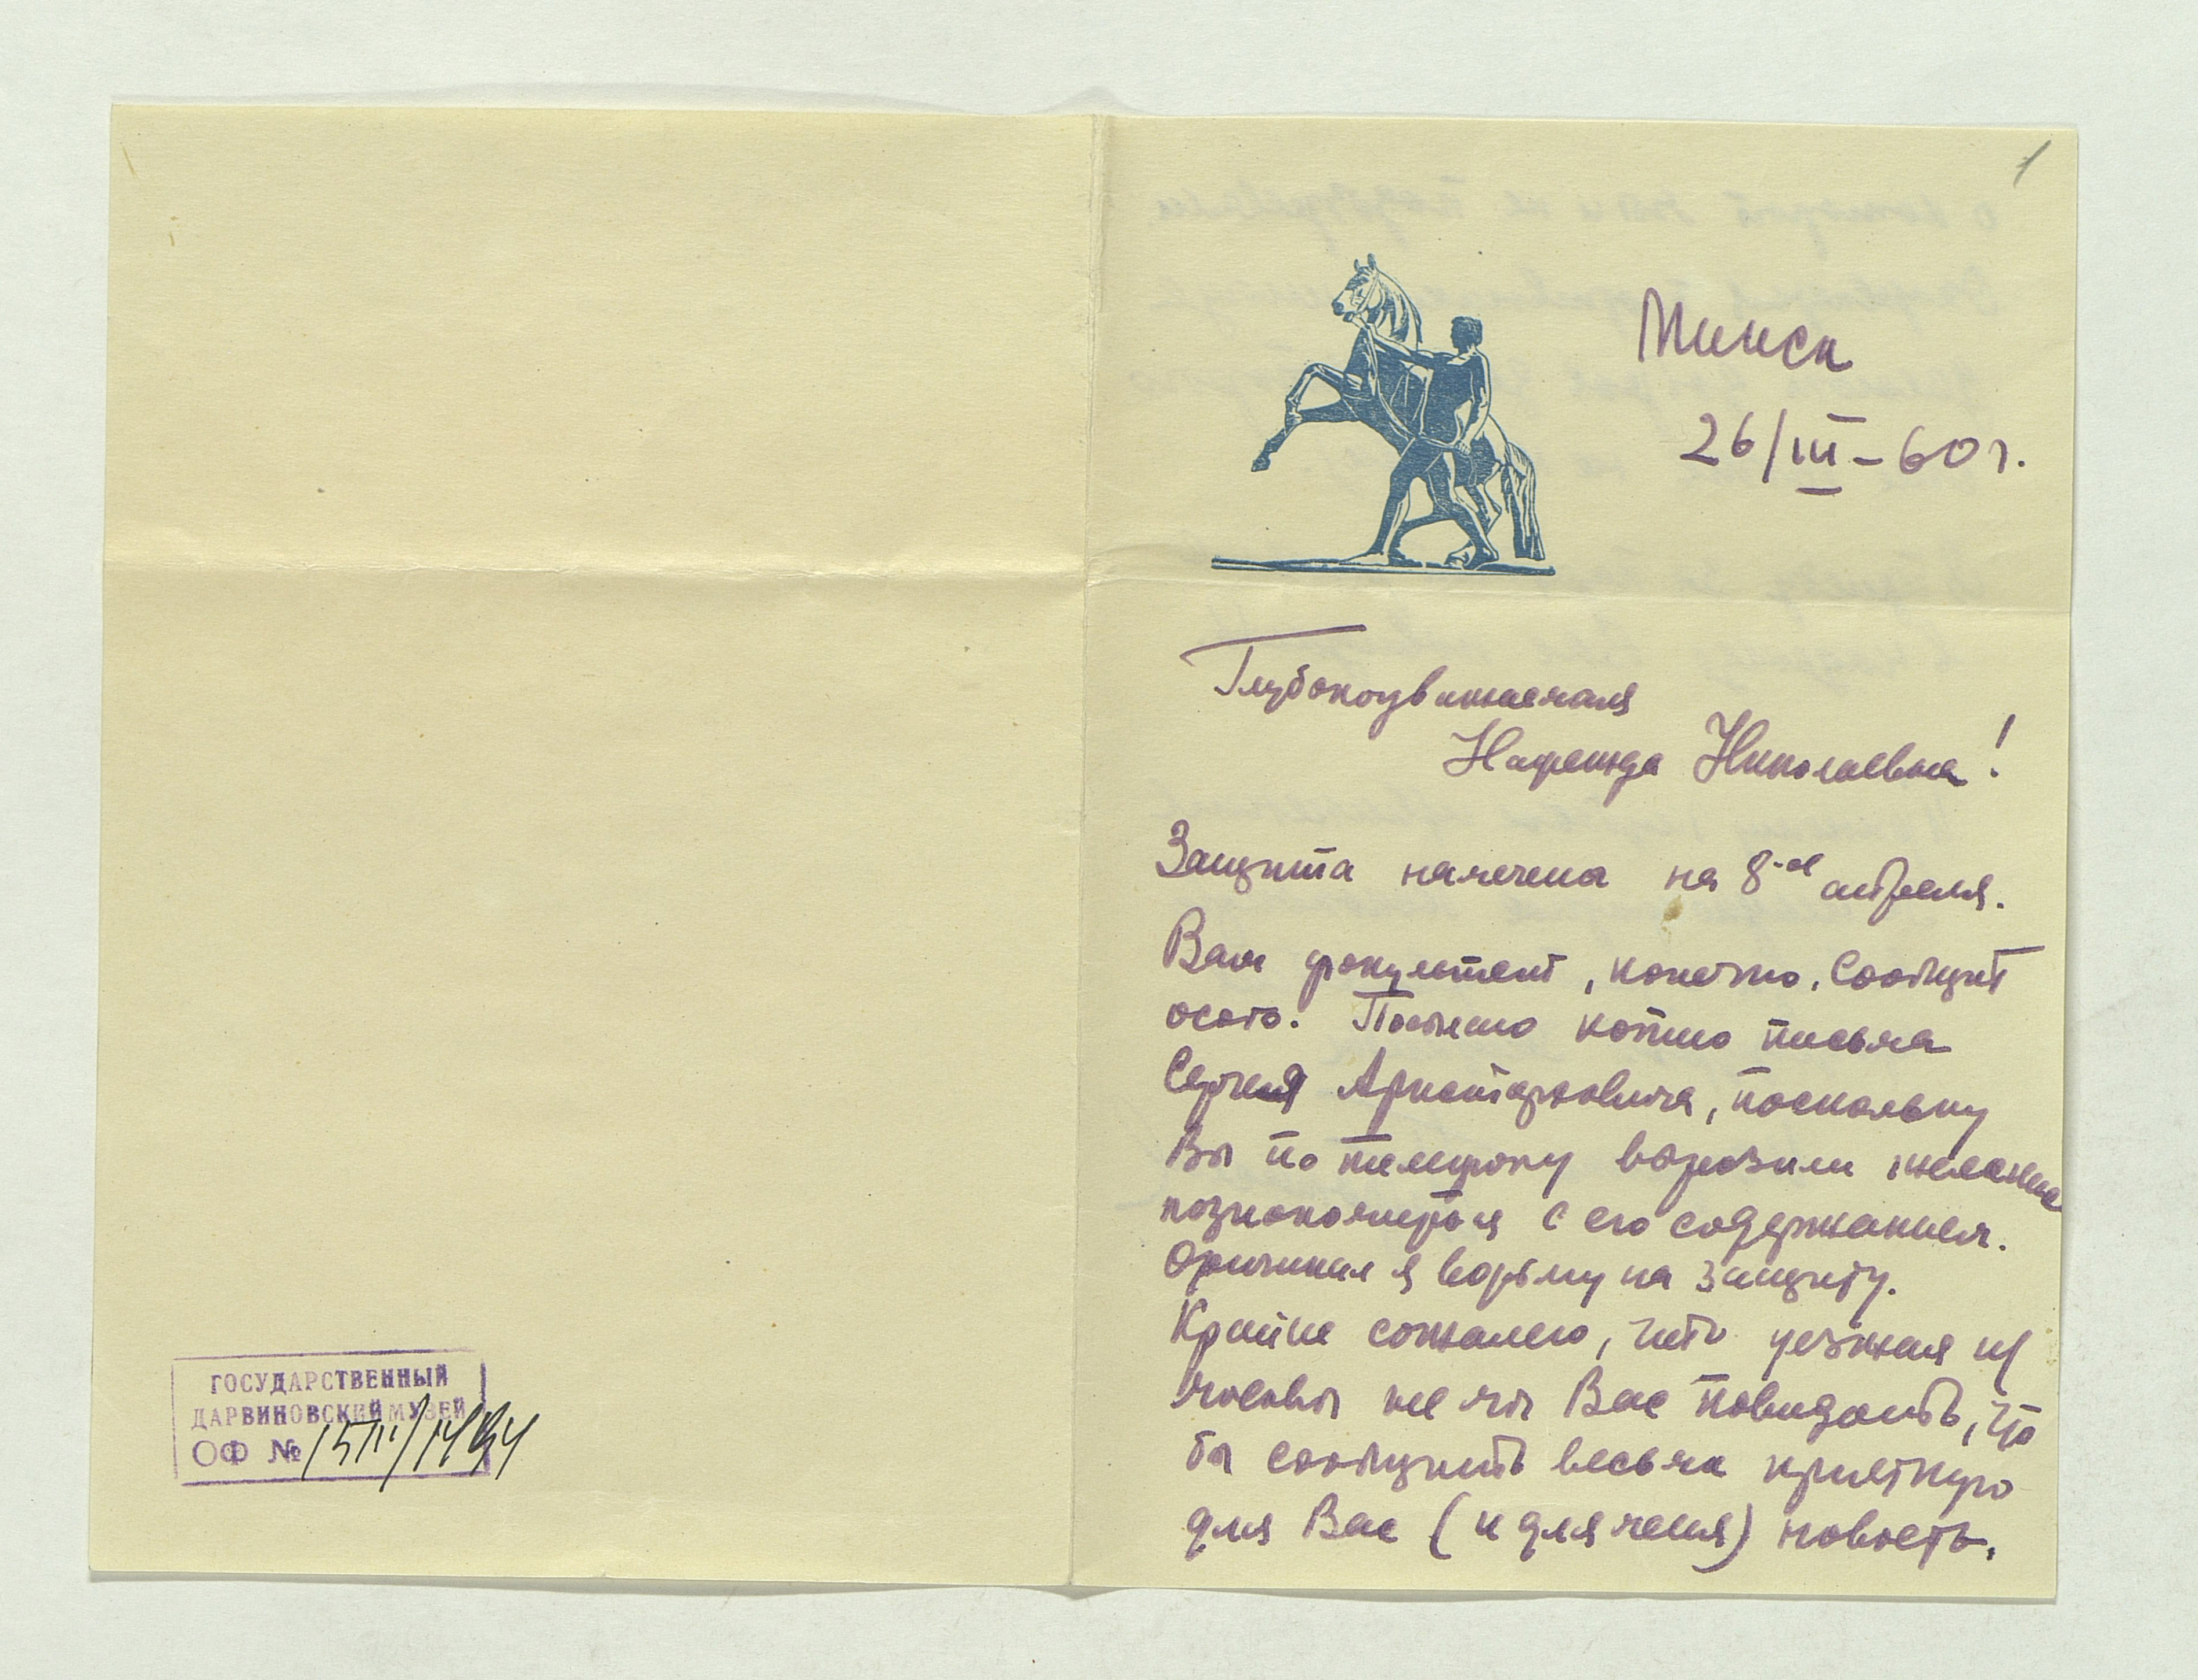 1
Минск
26/III-60 г.
Глубокоуважаемая
Надежда Николаевна!
Защита намечена на 8-ое апреля.
Вам факультет, конечно, сообщит
особо. Посылаю копию письма
Сергея Аристарховича, поскольку
Вы по телефону выразили желание
познакомиться с его содержанием.
Оригинал я возьму на защиту.
Крайне сожалею, что уезжая из
Москвы не мог Вас повидать, что
бы сообщить весьма приятную
для Вас (и для меня) новость,
ГОСУДАРСТВЕННЫЙ
ДАРВИНОВСКИЙ МУЗЕЙ
ОФ №